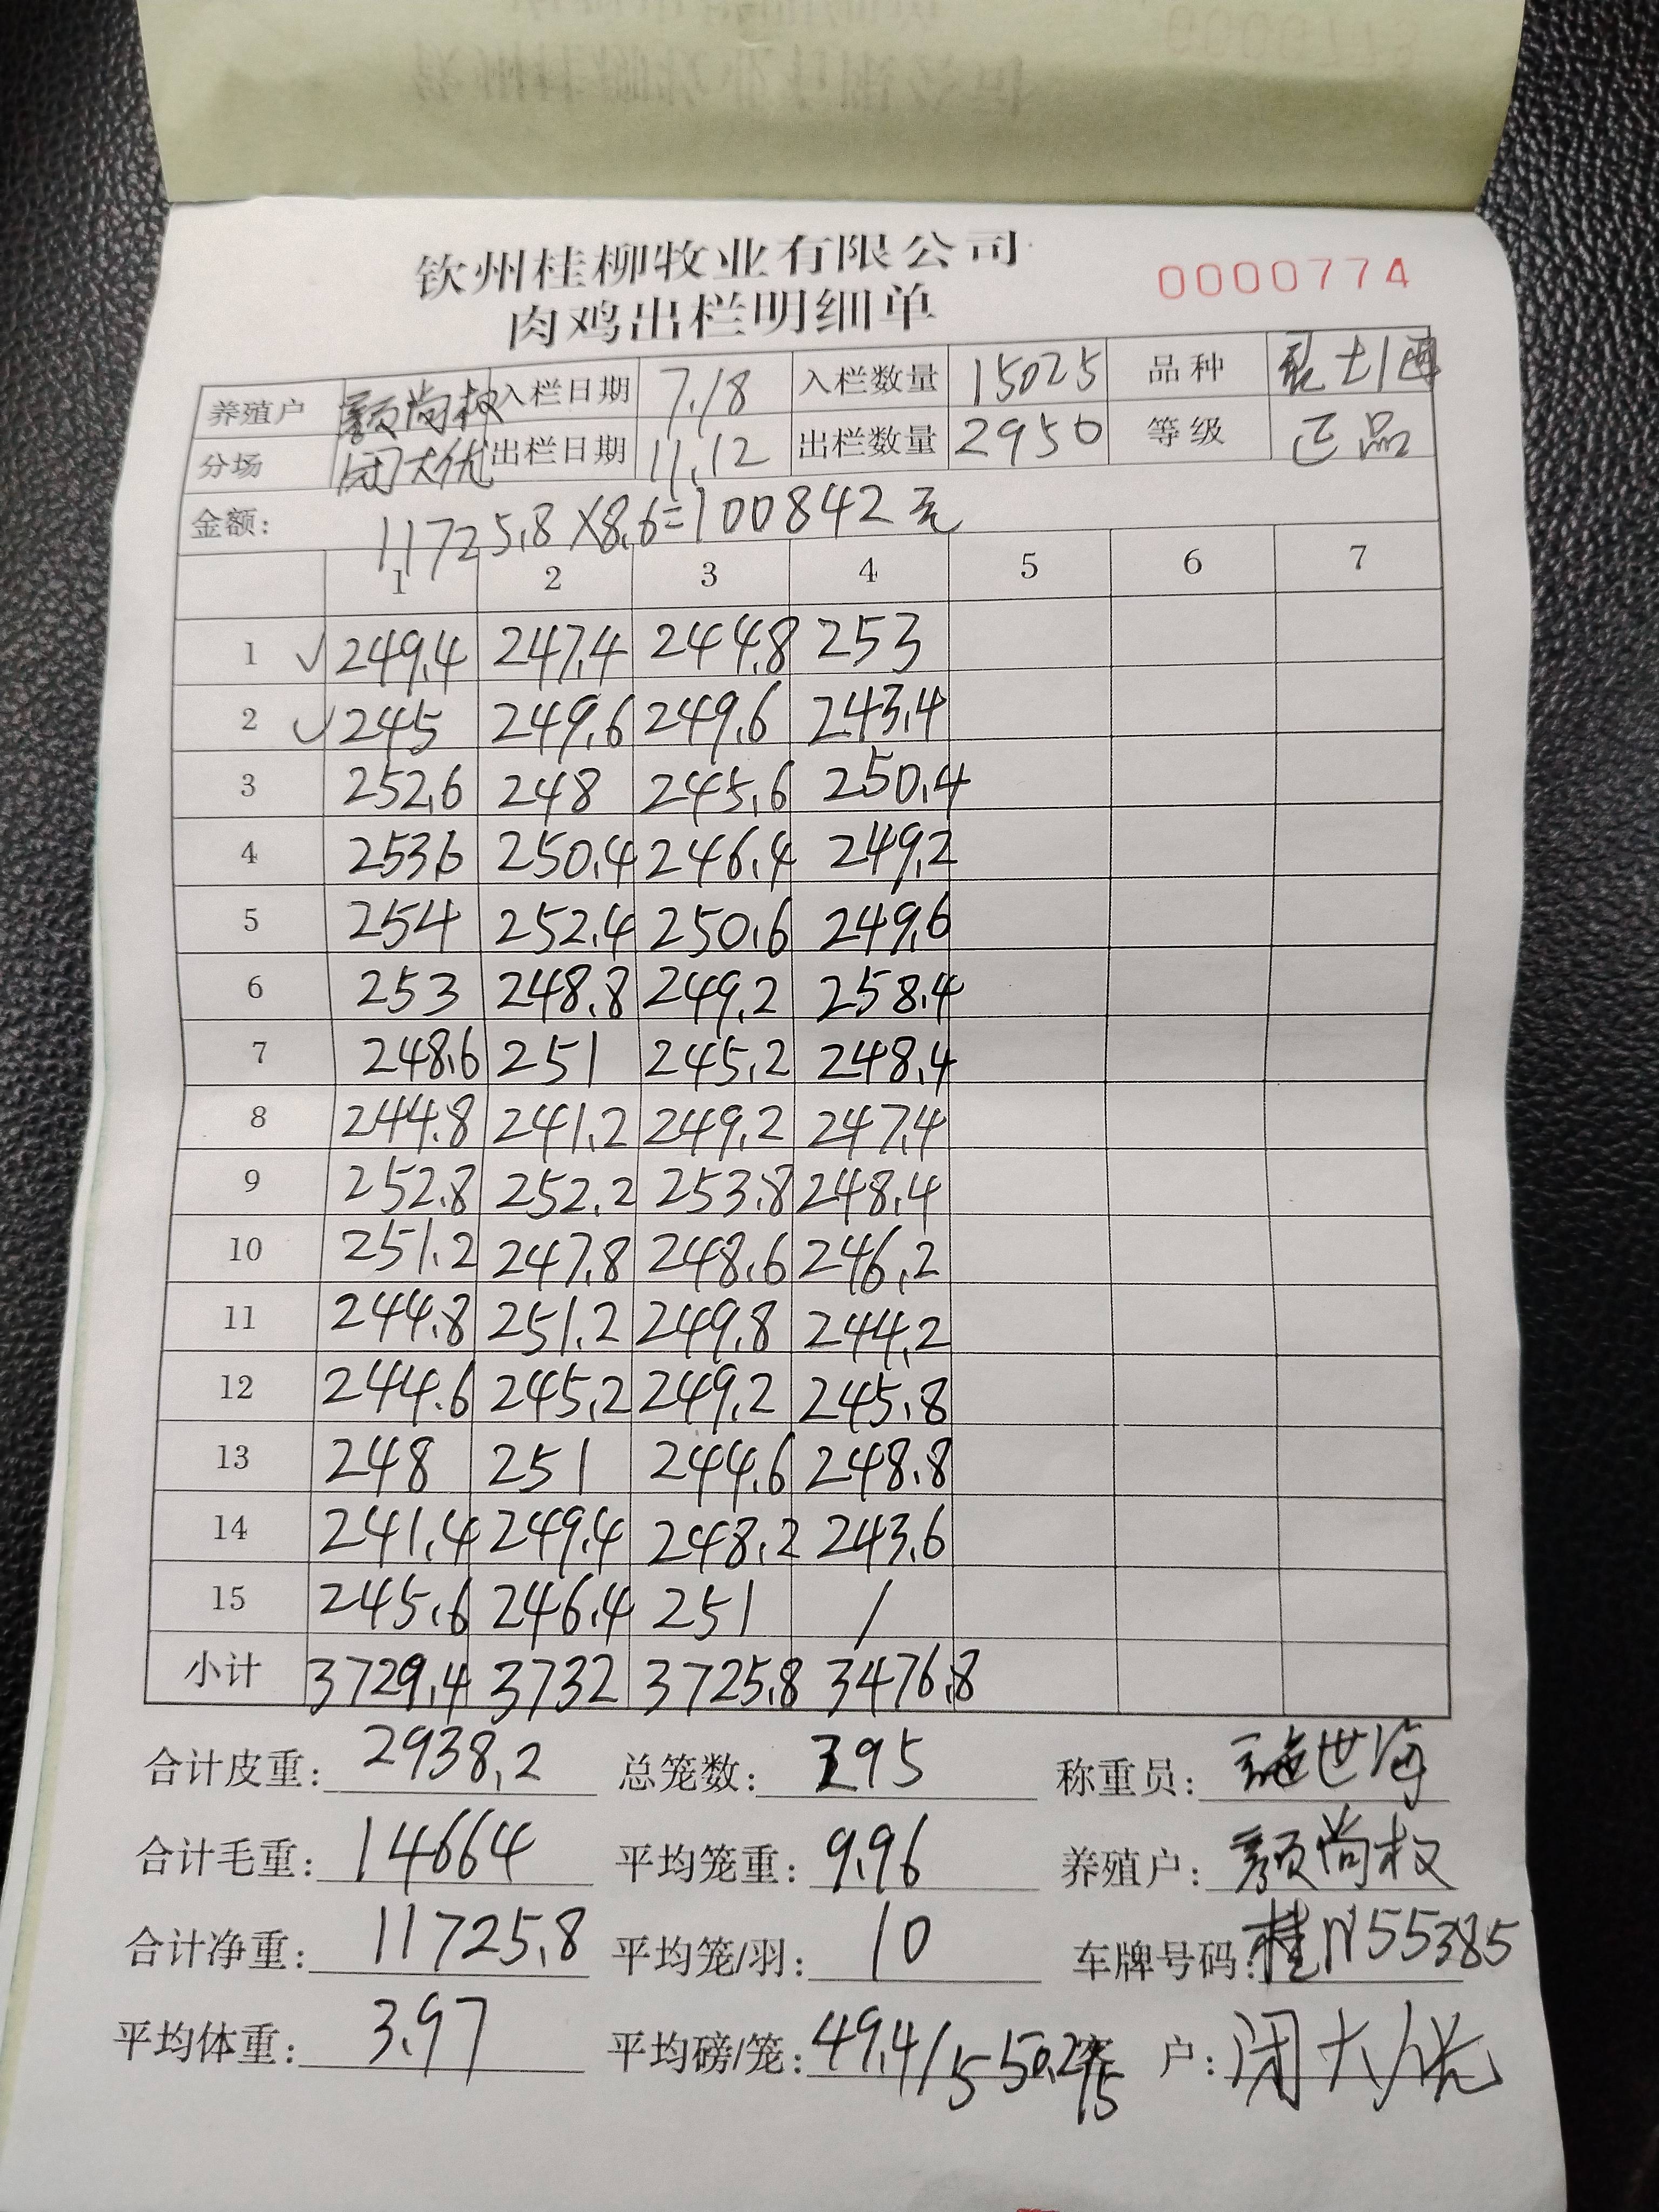 钦州桂柳牧业有限公司
肉鸡出栏明细单
0000774
养殖户 颜尚权 入栏日期 7.18 入栏数量 15025 品种
分场 闭大优 出栏日期 11.12 出栏数量 2950 等级 正品
金额: 11725.8×8.6=100842元
1 2 3 4 5 6 7
1 ✓ 249.4 247.4 244.8 253
2 ✓ 245 249.6 249.6 243.4
3 252.6 248 245.6 250.4
4 253.6 250.4 246.4 249.2
5 254 252.4 250.6 249.6
6 253 248.8 249.2 258.4
7 248.6 251 245.2 248.4
8 244.8 241.2 249.2 247.4
9 252.8 252.2 253.8 248.4
10 251.2 247.8 248.6 246.2
11 244.8 251.2 249.8 244.2
12 244.6 245.2 249.2 245.8
13 248 251 244.6 248.8
14 241.4 249.4 248.2 243.6
15 245.6 246.4 251 /
小计 3729.4 3732 3725.8 3476.8
合计皮重: 2938.2 总笼数: 295 称重员: 施世海
合计毛重: 14664 平均笼重: 9.96 养殖户: 颜尚权
合计净重: 11725.8 平均笼/羽: 10 车牌号码: 桂N55385
平均体重: 3.97 平均磅/笼: 49.4/5 50.2/5 户: 闭大优